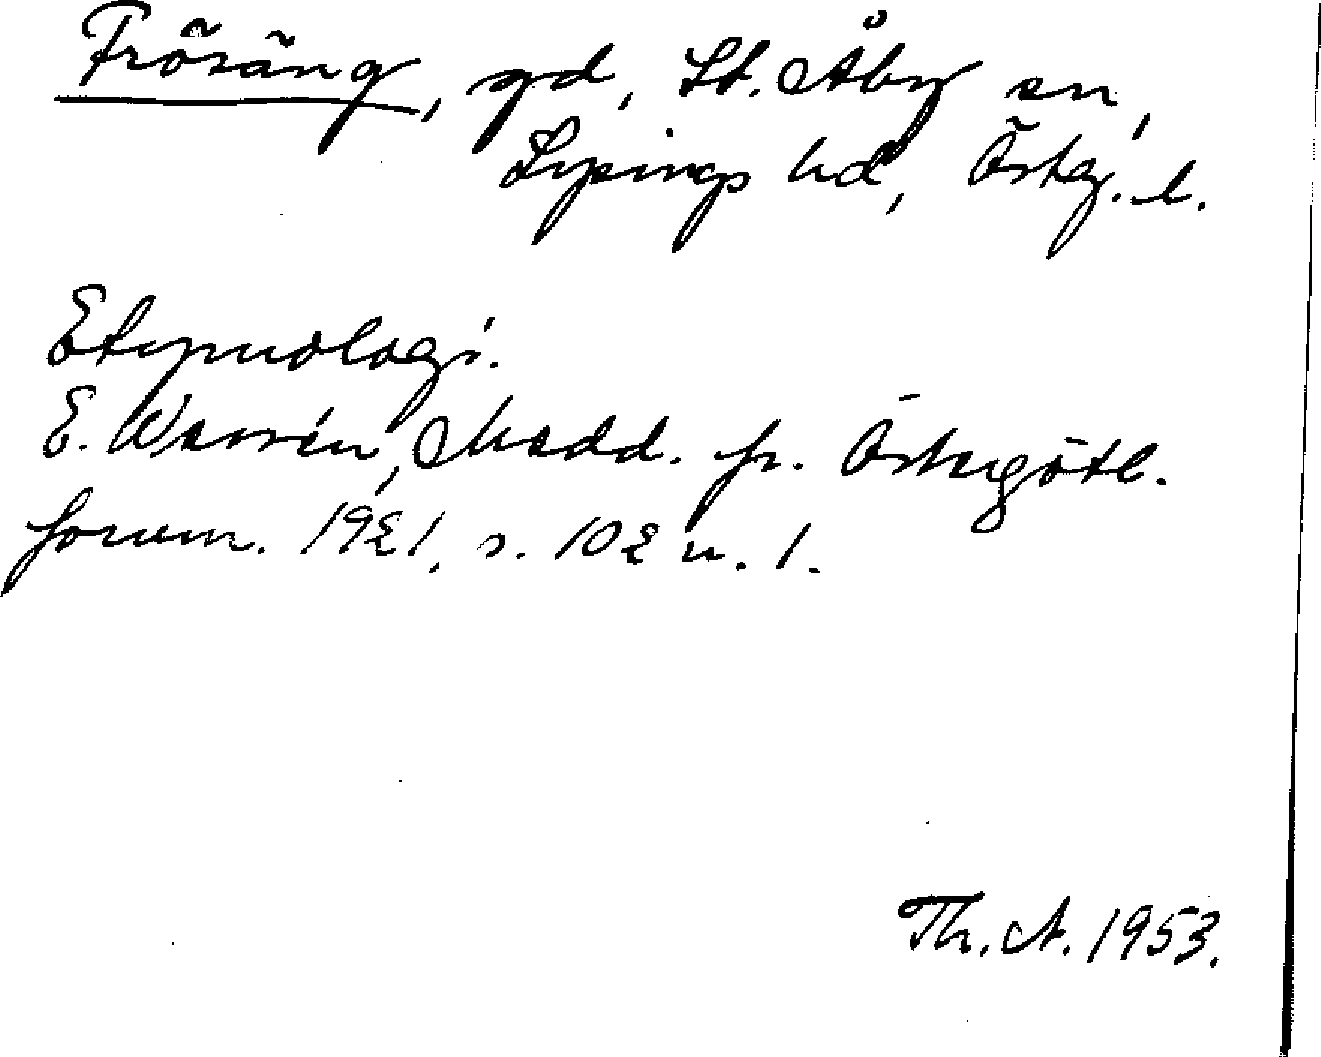 Frösäng, gd, St. Åby sn,
Lysings hd, Östg. l.
Etymologi.
E. Wessén, Medd. fr. Östergötl.
fornm. 1921, s. 102 n. 1.
Th. A. 1953.